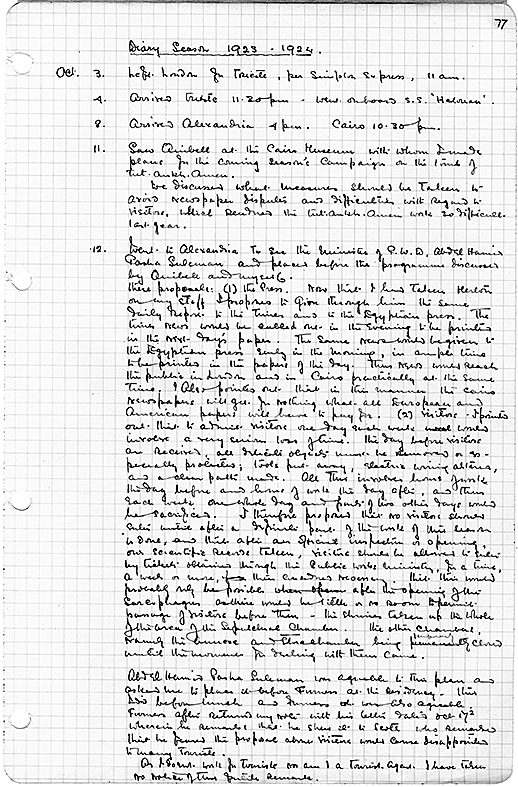 77
Diary Season 1923 - 1924.
Oct. 3. Left London for Trieste, per Simplon Express, 11 am.
4. Arrived Trieste 11.20 pm - went on board S.S. "Helouan".
8. Arrived Alexandria 4 pm. Cairo 10.30 pm.
11. Saw Quibell at the Cairo Museum with whom I made
plans for the coming season's Campaign on the tomb of
Tut.ankh.Amen.
We discussed what measures should be taken to
avoid newspaper disputes and difficulties with regard to
visitors, which rendered the Tut.ankh.Amen work so difficult
last year.
12. Went to Alexandria to see the Minister of P.W.D. Abdel Hamid
Pasha Suleman and placed before the programme discussed
by Quibell and myself.
These proposals: (1) the Press. Now that I have taken Merton
on my staff I propose to give through him the same
daily report to the Times and to the Egyptian press. The
Times news would be called out in the evening to be printed
in the next day's paper. The same news would be given to
the Egyptian press early in the morning, in ample time
to be printed in the papers of the day. Thus news would reach
the public in London and in Cairo practically at the same
time. I also pointed out that in this manner the Cairo
newspapers will get for nothing what all European and
American papers will have to pay for. (2) Visitors - I pointed
out that to admit visitors one day each week would
involve a very serious loss of time. The day before visitors
are received, all delicate objects must be removed or
specially protected; tools put away, electric wiring altered,
and a clear path made. All this involves hours of work
the day before and hours of work the day after, and thus
each week one whole day and parts of two other days would
be sacrificed. I therefore proposed that no visitors should
enter until after a definite part of the work of this season
is done, and that after an official inspection or opening,
our scientific records taken, visitors should be allowed to enter
by tickets obtained through the Public Works Ministry, for a time,
a week or more, than considered necessary. That this would
probably only be possible after the opening of the
Sarcophagus. as there would be little or no room to permit
passage of visitors before then - the shrines taken up the whole
of the area of the Sepulchral Chamber - the other chambers,
namely the annexe and being closed
until the moment for dealing with them came.
Abdel Hamid Pasha Suleman was agreeable to this plan and
asked me to place it before Furness at the Residency - this
I did before lunch and Furness was also agreeable.
Furness after returned my note with his letter dated Oct 17
wherein he remarked that he shew it to Scott who remarked
that he feared the proposal above visitors would cause disappointment
to many tourists.
As I don't work for tourists nor am I a tourist agent. I have taken
no notice of this remark.